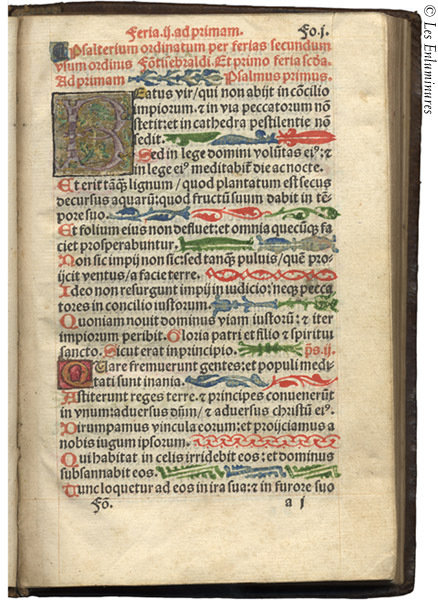 Feria.ij. ad primam. Fo.j.
Psalterium ordinatum per ferias secundum
vsum ordinis Fōtisebraldi. Et primo feria scḋa.
Ad primam Psalmus primus.
Beatus vir/ qui non abijt in cōcilio
impiorum: & in via peccatorum nō
stetit: et in cathedra pestilentie nō
sedit.
Sed in lege domini volūtas ei⁹: &
in lege ei⁹ meditabiť die ac nocte.
Et erit tāq̄ lignum / quod plantatum est secus
decursus aquarū: quod fructū suum dabit in tē-
pore suo.
Et folium eius non defluet: et omnia quecūq̄ fa
ciet prosperabuntur.
Non sic impij non sic: sed tanq̄ puluis / quē pro-
ijcit ventus / a facie terre.
Ideo non resurgunt impij in iudicio: neq̄ pecca
tores in concilio iustorum.
Quoniam nouit dominus viam iustorū: & iter
impiorum peribit. Gloria patri et filio & spiritui
sancto. Sicut erat in principio. p̄s. ij.
Quare fremuerunt gentes: et populi medi-
tati sunt inania.
Astiterunt reges terre. & principes conuenerūt
in vnum aduersus dn̄m / & aduersus christū ei⁹.
Dirumpamus vincula eorum: et proijciamus a
nobis iugum ipsorum.
Qui habitat in celis irridebit eos: et dominus
subsannabit eos.
Tunc loquetur ad eos in ira sua: & in furore suo
Fō. a j
© Les Enluminures